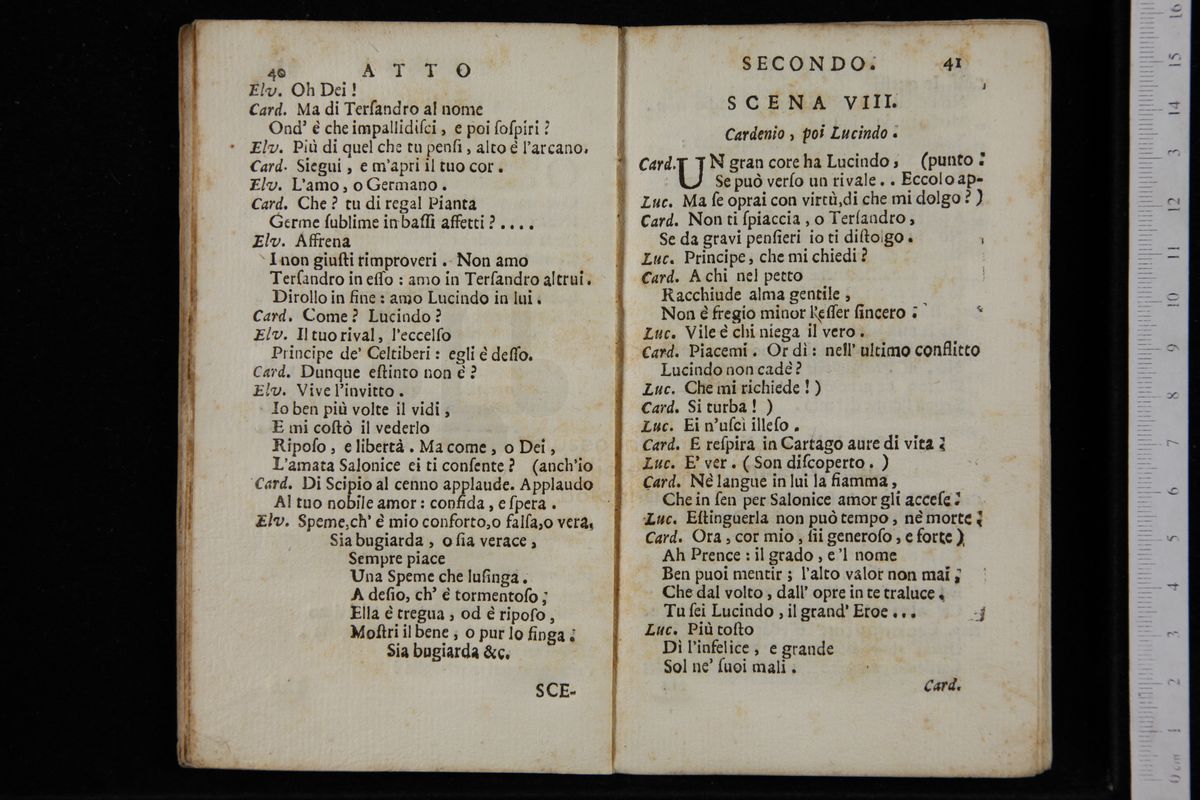 40 ATTO
Elv. Oh Dei !
Card. Ma di Terſandro al nome
Ond' è che impallidiſci , e poi ſoſpiri ?
Elv. Più di quel che tu penſi , alto è l'arcano.
Card. Siegui , e m'apri il tuo cor .
Elv. L'amo , o Germano .
Card. Che ? tu di regal Pianta
Germe ſublime in baſſi affetti ? . . . .
Elv. Affrena
I non giuſti rimproveri . Non amo
Terſandro in eſſo : amo in Terſandro altrui.
Dirollo in fine : amo Lucindo in lui .
Card. Come ? Lucindo ?
Elv. Il tuo rival , l'eccelſo
Principe de' Celtiberi : egli è deſſo.
Card. Dunque eſtinto non è ?
Elv. Vive l'invitto .
Io ben più volte il vidi ,
E mi coſtò il vederlo
Ripoſo , e libertà . Ma come , o Dei ,
L'amata Salonice ei ti conſente ? (anch'io
Card. Di Scipio al cenno applaude. Applaudo
Al tuo nobile amor : confida , e ſpera .
Elv. Speme,ch' è mio conforto,o falſa,o vera,
Sia bugiarda , o ſia verace ,
Sempre piace
Una Speme che luſinga .
A deſio, ch' è tormentoſo ;
Ella è tregua , od è ripoſo ,
Moſtri il bene , o pur lo finga .
Sia bugiarda &c.
SCE-
SECONDO. 41
SCENA VIII.
Cardenio , poi Lucindo .
Card. UN gran core ha Lucindo , (punto .
Se può verſo un rivale . . Eccolo ap-
Luc. Ma ſe oprai con virtù,di che mi dolgo ? )
Card. Non ti ſpiaccia , o Terſandro ,
Se da gravi penſieri io ti diſtolgo .
Luc. Principe , che mi chiedi ?
Card. A chi nel petto
Racchiude alma gentile ,
Non è fregio minor l'eſſer ſincero .
Luc. Vile è chi niega il vero .
Card. Piacemi . Or dì : nell' ultimo conflitto
Lucindo non cadè ?
Luc. Che mi richiede ! )
Card. Si turba ! )
Luc. Ei n'uſcì illeſo .
Card. E reſpira in Cartago aure di vita ?
Luc. E' ver . ( Son diſcoperto . )
Card. Nè langue in lui la fiamma ,
Che in ſen per Salonice amor gli acceſe .
Luc. Eſtinguerla non può tempo , nè morte .
Card. Ora , cor mio , ſii generoſo , e forte )
Ah Prence : il grado , e 'l nome
Ben puoi mentir ; l'alto valor non mai ,
Che dal volto , dall' opre in te traluce .
Tu ſei Lucindo , il grand' Eroe . . .
Luc. Più toſto
Dì l'infelice , e grande
Sol ne' ſuoi mali .
Card.